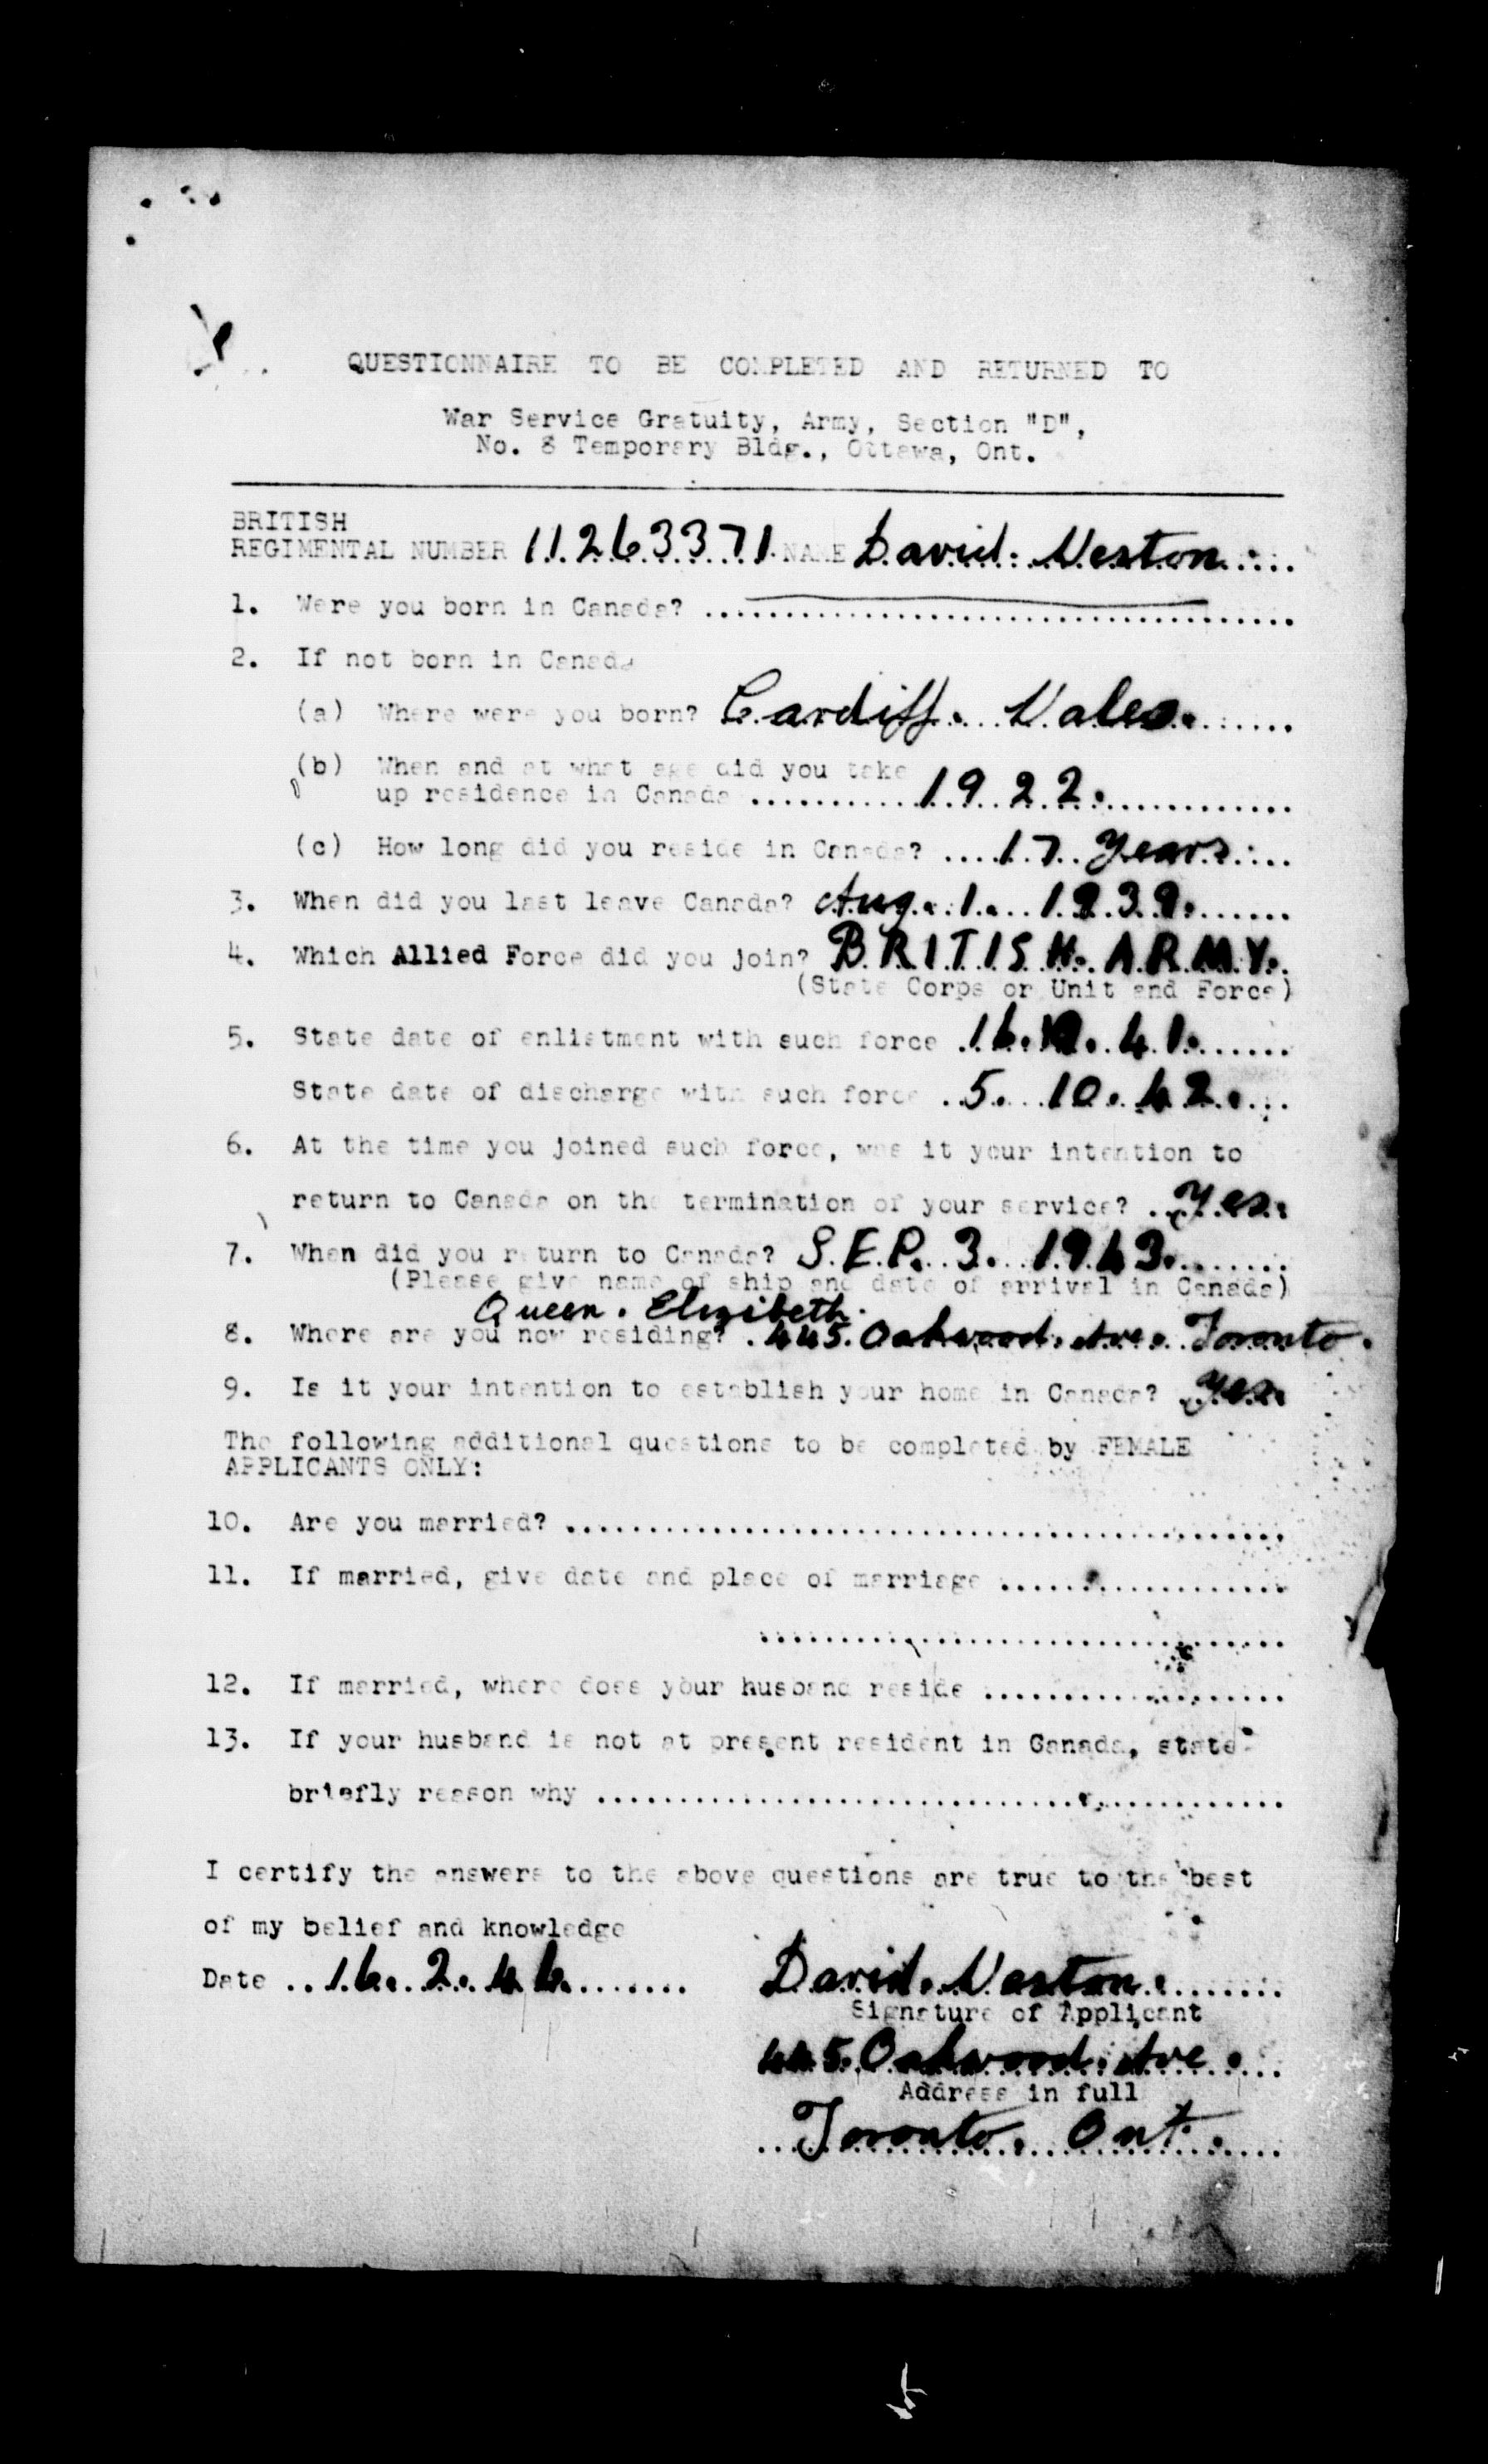 QUESTIONNAIRE TO BE COMPLETED AND RETURNED TO
War Service Gratuity, Army, Section "D",
No. 8 Temporary Bldg., Ottawa, Ont.
BRITISH
REGIMENTAL NUMBER 11263371 NAME David. Weston
1. Were you born in Canada?
2. If not born in Canada
(a) Where were you born? Cardiff. Wales.
(b) When and at what age did you take
up residence in Canada 1922.
(c) How long did you reside in Canada? 17 years
3. When did you last leave Canada? Aug. 1. 1939.
4. Which Allied Force did you join? BRITISH. ARMY.
(State Corps or Unit and Force)
5. State date of enlistment with such force 16. . 41.
State date of discharge with such force 5. 10. 42.
6. At the time you joined such force, was it your intention to
return to Canada on the termination of your service? Yes.
7. When did you return to Canada? SEP. 3. 1943.
(Please give name of ship and date of arrival in Canada)
Queen. Elizibeth.
8. Where are you now residing? 445. Oakwood. Ave. Toronto.
9. Is it your intention to establish your home in Canada? Yes.
The following additional questions to be completed by FEMALE
APPLICANTS ONLY:
10. Are you married?
11. If married, give date and place of marriage
12. If married, where does your husband reside
13. If your husband is not at present resident in Canada, state
briefly reason why
I certify the answers to the above questions are true to the best
of my belief and knowledge
Date 16. 2. 46. David. Weston.
Signature of Applicant
445. Oakwood. Ave.
Address in full
Toronto. Ont.